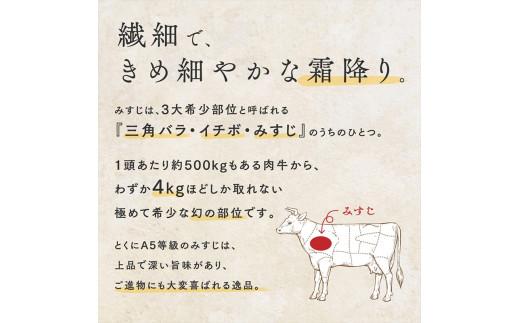 繊細で、
きめ細やかな霜降り。
みすじは、3大希少部位と呼ばれる
『三角バラ・イチボ・みすじ』のうちのひとつ。
1頭あたり約500kgもある肉牛から、
わずか4kgほどしか取れない
極めて希少な幻の部位です。
とくにA5等級のみすじは、
上品で深い旨味があり、
ご進物にも大変喜ばれる逸品。
みすじ